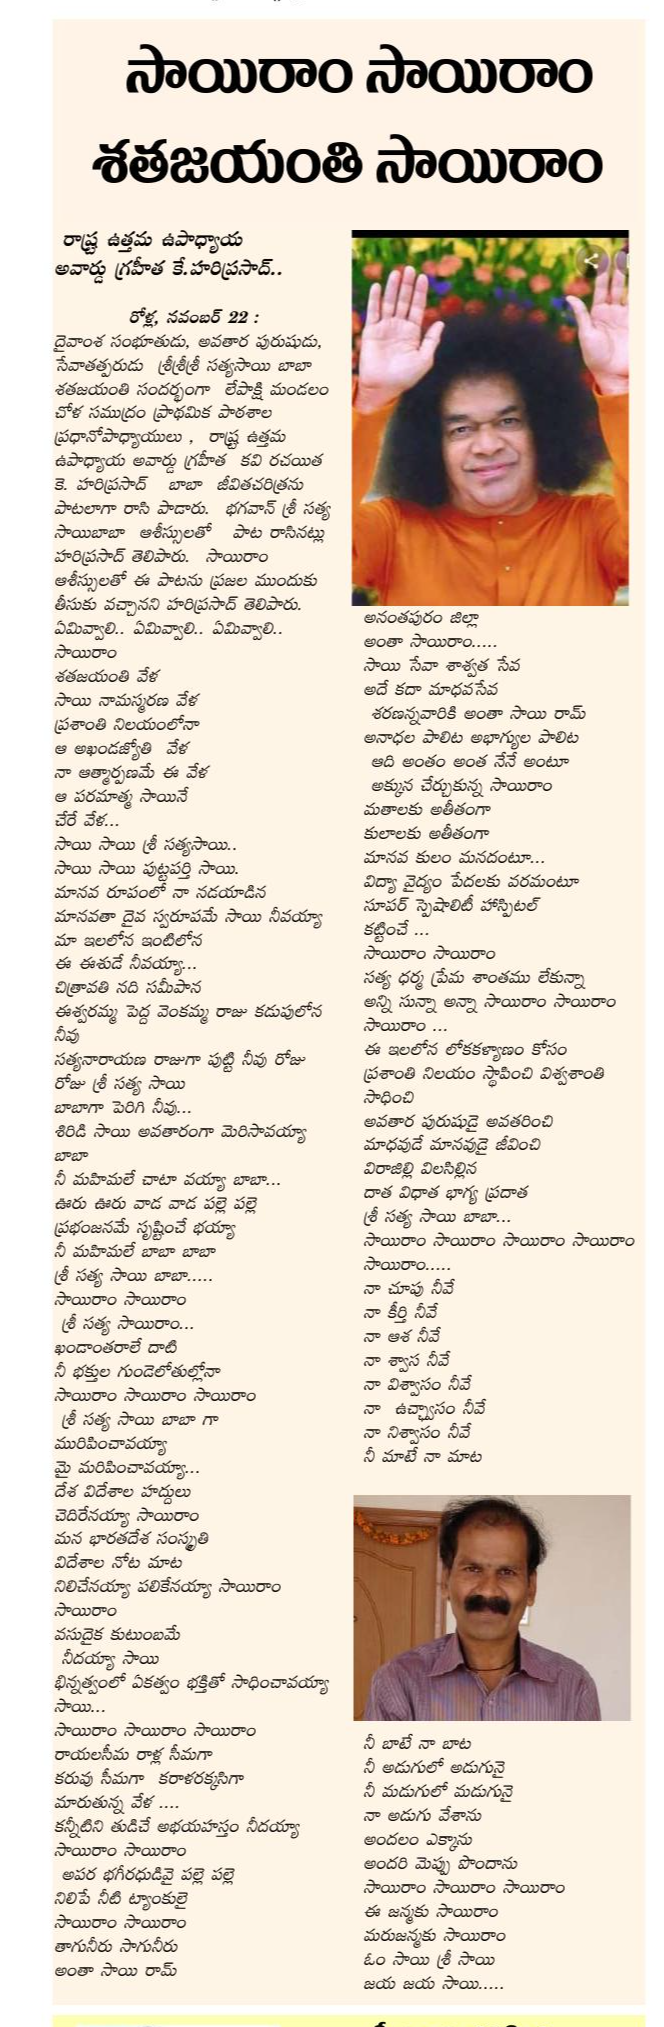 సాయిరాం సాయిరాం
శతజయంతి సాయిరాం
రాష్ట్ర ఉత్తమ ఉపాధ్యాయ
అవార్డు గ్రహీత కే.హరిప్రసాద్..
రోళ్ల, నవంబర్ 22 :
దైవాంశ సంభూతుడు, అవతార పురుషుడు,
సేవాతత్పరుడు శ్రీశ్రీశ్రీ సత్యసాయి బాబా
శతజయంతి సందర్భంగా లేపాక్షి మండలం
చోళ సముద్రం ప్రాథమిక పాఠశాల
ప్రధానోపాధ్యాయులు , రాష్ట్ర ఉత్తమ
ఉపాధ్యాయ అవార్డు గ్రహీత కవి రచయిత
కె. హరిప్రసాద్ బాబా జీవితచరిత్రను
పాటలాగా రాసి పాడారు. భగవాన్ శ్రీ సత్య
సాయిబాబా ఆశీస్సులతో పాట రాసినట్లు
హరిప్రసాద్ తెలిపారు. సాయిరాం
ఆశీస్సులతో ఈ పాటను ప్రజల ముందుకు
తీసుకు వచ్చానని హరిప్రసాద్ తెలిపారు.
ఏమివ్వాలి.. ఏమివ్వాలి.. ఏమివ్వాలి..
సాయిరాం
శతజయంతి వేళ
సాయి నామస్మరణ వేళ
ప్రశాంతి నిలయంలోనా
ఆ అఖండజ్యోతి వేళ
నా ఆత్మార్పణమే ఈ వేళ
ఆ పరమాత్మ సాయినే
చేరే వేళ...
సాయి సాయి శ్రీ సత్యసాయి..
సాయి సాయి పుట్టపర్తి సాయి.
మానవ రూపంలో నా నడయాడిన
మానవతా దైవ స్వరూపమే సాయి నీవయ్యా
మా ఇలలోన ఇంటిలోన
ఈ ఈశుడే నీవయ్యా...
చిత్రావతి నది సమీపాన
ఈశ్వరమ్మ పెద్ద వెంకమ్మ రాజు కడుపులోన
నీవు
సత్యనారాయణ రాజుగా పుట్టి నీవు రోజు
రోజు శ్రీ సత్య సాయి
బాబాగా పెరిగి నీవు...
శిరిడి సాయి అవతారంగా మెరిసావయ్యా
బాబా
నీ మహిమలే చాటా వయ్యా బాబా...
ఊరు ఊరు వాడ వాడ పల్లె పల్లె
ప్రభంజనమే సృష్టించే భయ్యా
నీ మహిమలే బాబా బాబా
శ్రీ సత్య సాయి బాబా.....
సాయిరాం సాయిరాం
శ్రీ సత్య సాయిరాం...
ఖండాంతరాలే దాటి
నీ భక్తుల గుండెలోతుల్లోనా
సాయిరాం సాయిరాం సాయిరాం
శ్రీ సత్య సాయి బాబా గా
మురిపించావయ్యా
మై మరిపించావయ్యా...
దేశ విదేశాల హద్దులు
చెదిరేనయ్యా సాయిరాం
మన భారతదేశ సంస్కృతి
విదేశాల నోట మాట
నిలిచేనయ్యా పలికేనయ్యా సాయిరాం
సాయిరాం
వసుదైక కుటుంబమే
నీదయ్యా సాయి
భిన్నత్వంలో ఏకత్వం భక్తితో సాధించావయ్యా
సాయి...
సాయిరాం సాయిరాం సాయిరాం
రాయలసీమ రాళ్ల సీమగా
కరువు సీమగా కరాళరక్కసిగా
మారుతున్న వేళ ....
కన్నీటిని తుడిచే అభయహస్తం నీదయ్యా
సాయిరాం సాయిరాం
అపర భగీరథుడివై పల్లె పల్లె
నిలిపే నీటి ట్యాంకులై
సాయిరాం సాయిరాం
తాగునీరు సాగునీరు
అంతా సాయి రామ్
అనంతపురం జిల్లా
అంతా సాయిరాం.....
సాయి సేవా శాశ్వత సేవ
అదే కదా మాధవసేవ
శరణన్నవారికి అంతా సాయి రామ్
అనాధల పాలిట అభాగ్యుల పాలిట
ఆది అంతం అంత నేనే అంటూ
అక్కున చేర్చుకున్న సాయిరాం
మతాలకు అతీతంగా
కులాలకు అతీతంగా
మానవ కులం మనదంటూ...
విద్యా వైద్యం పేదలకు వరమంటూ
సూపర్ స్పెషాలిటీ హాస్పిటల్
కట్టించే ...
సాయిరాం సాయిరాం
సత్య ధర్మ ప్రేమ శాంతము లేకున్నా
అన్ని సున్నా అన్నా సాయిరాం సాయిరాం
సాయిరాం ...
ఈ ఇలలోన లోకకళ్యాణం కోసం
ప్రశాంతి నిలయం స్థాపించి విశ్వశాంతి
సాధించి
అవతార పురుషుడై అవతరించి
మాధవుడే మానవుడై జీవించి
విరాజిల్లి విలసిల్లిన
దాత విధాత భాగ్య ప్రదాత
శ్రీ సత్య సాయి బాబా...
సాయిరాం సాయిరాం సాయిరాం సాయిరాం
సాయిరాం.....
నా చూపు నీవే
నా కీర్తి నీవే
నా ఆశ నీవే
నా శ్వాస నీవే
నా విశ్వాసం నీవే
నా ఉచ్ఛ్వాసం నీవే
నా నిశ్వాసం నీవే
నీ మాటే నా మాట
నీ బాటే నా బాట
నీ అడుగులో అడుగునై
నీ మడుగులో మడుగునై
నా అడుగు వేశాను
అందలం ఎక్కాను
అందరి మెప్పు పొందాను
సాయిరాం సాయిరాం సాయిరాం
ఈ జన్మకు సాయిరాం
మరుజన్మకు సాయిరాం
ఓం సాయి శ్రీ సాయి
జయ జయ సాయి.....